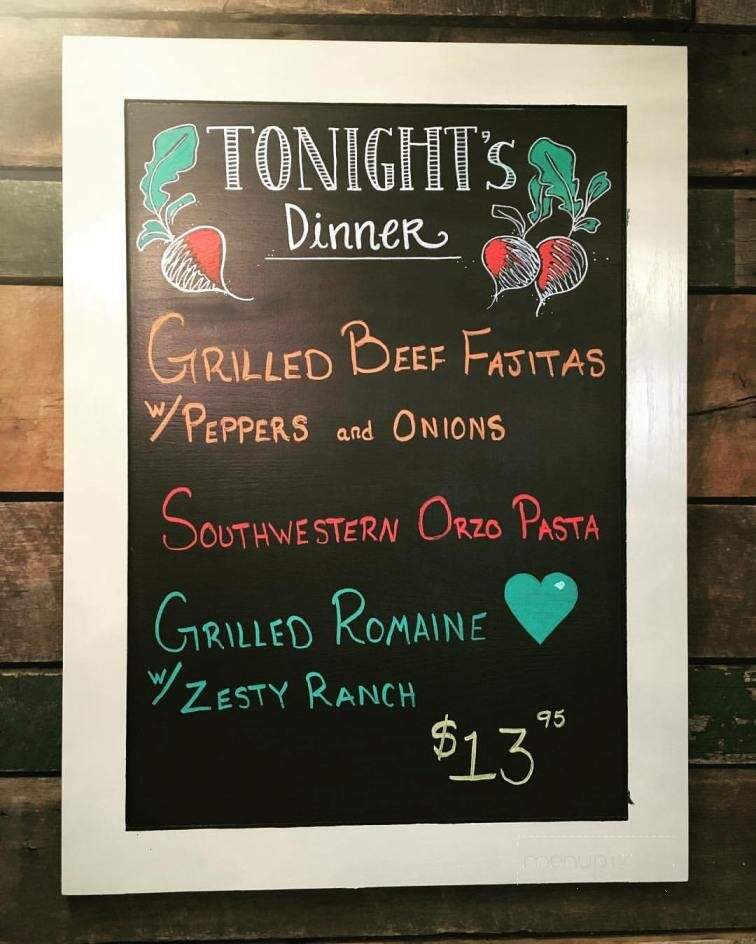 TONIGHT's
Dinner
GRILLED BEEF FAJITAS
w/PEPPERS and ONIONS
SOUTHWESTERN ORZO PASTA
GRILLED ROMAINE
w/ZESTY RANCH
$13.95